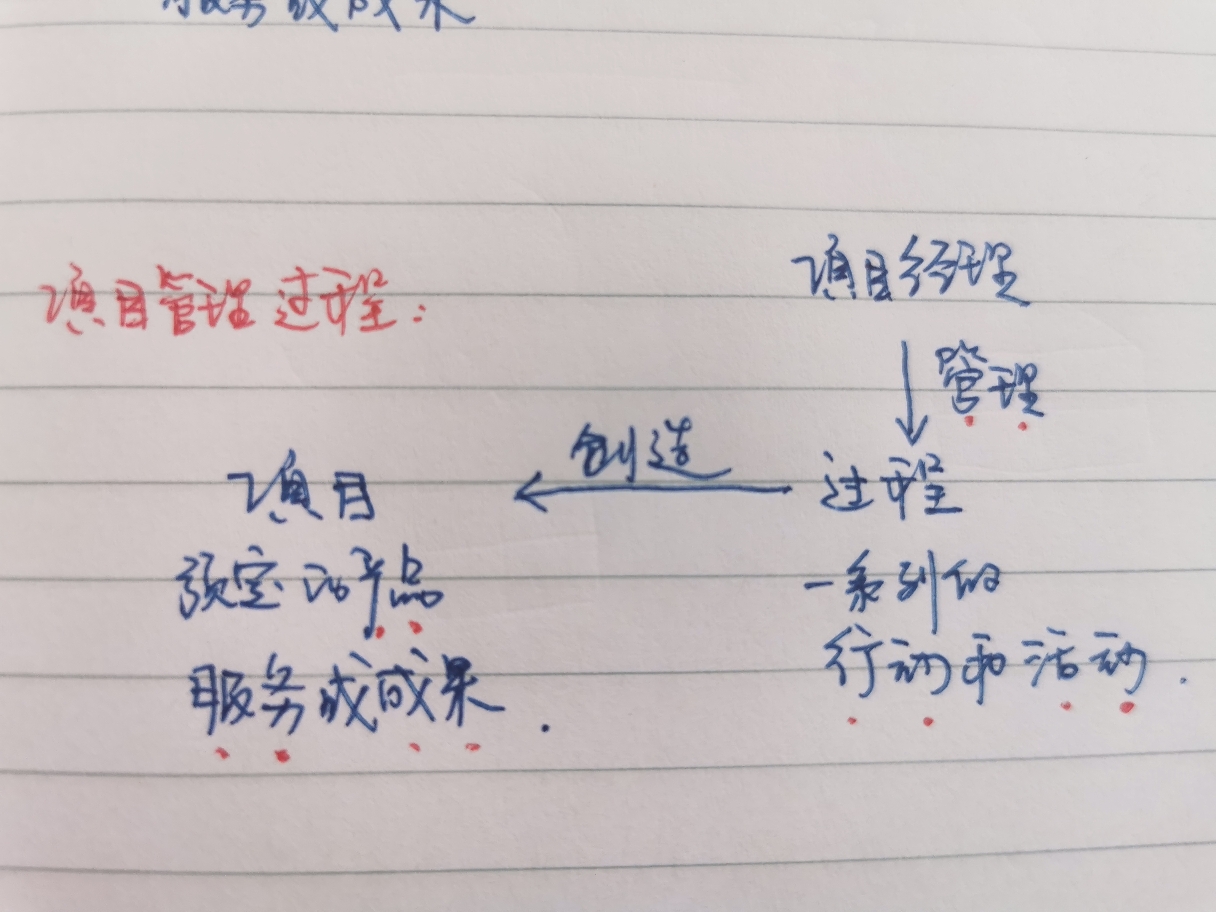 服务或成果
项目管理过程:
项目经理
管理
创造
项目
过程
预定的产品
一系列的
服务或成果.
行动和活动.